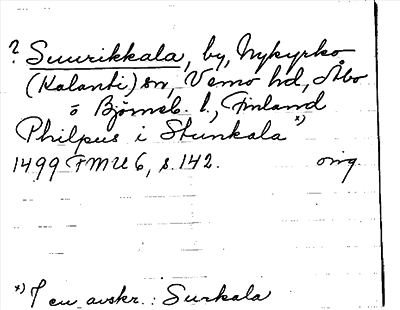 ? Suurikkala, by, Nykyrko
(Kalanti) sn, Vemo hd, Åbo
o Björneb. l., Finland
Philpus i Stunkala x)
1499 FMU 6, s. 142. orig.
x) I en avskr.: Surkala